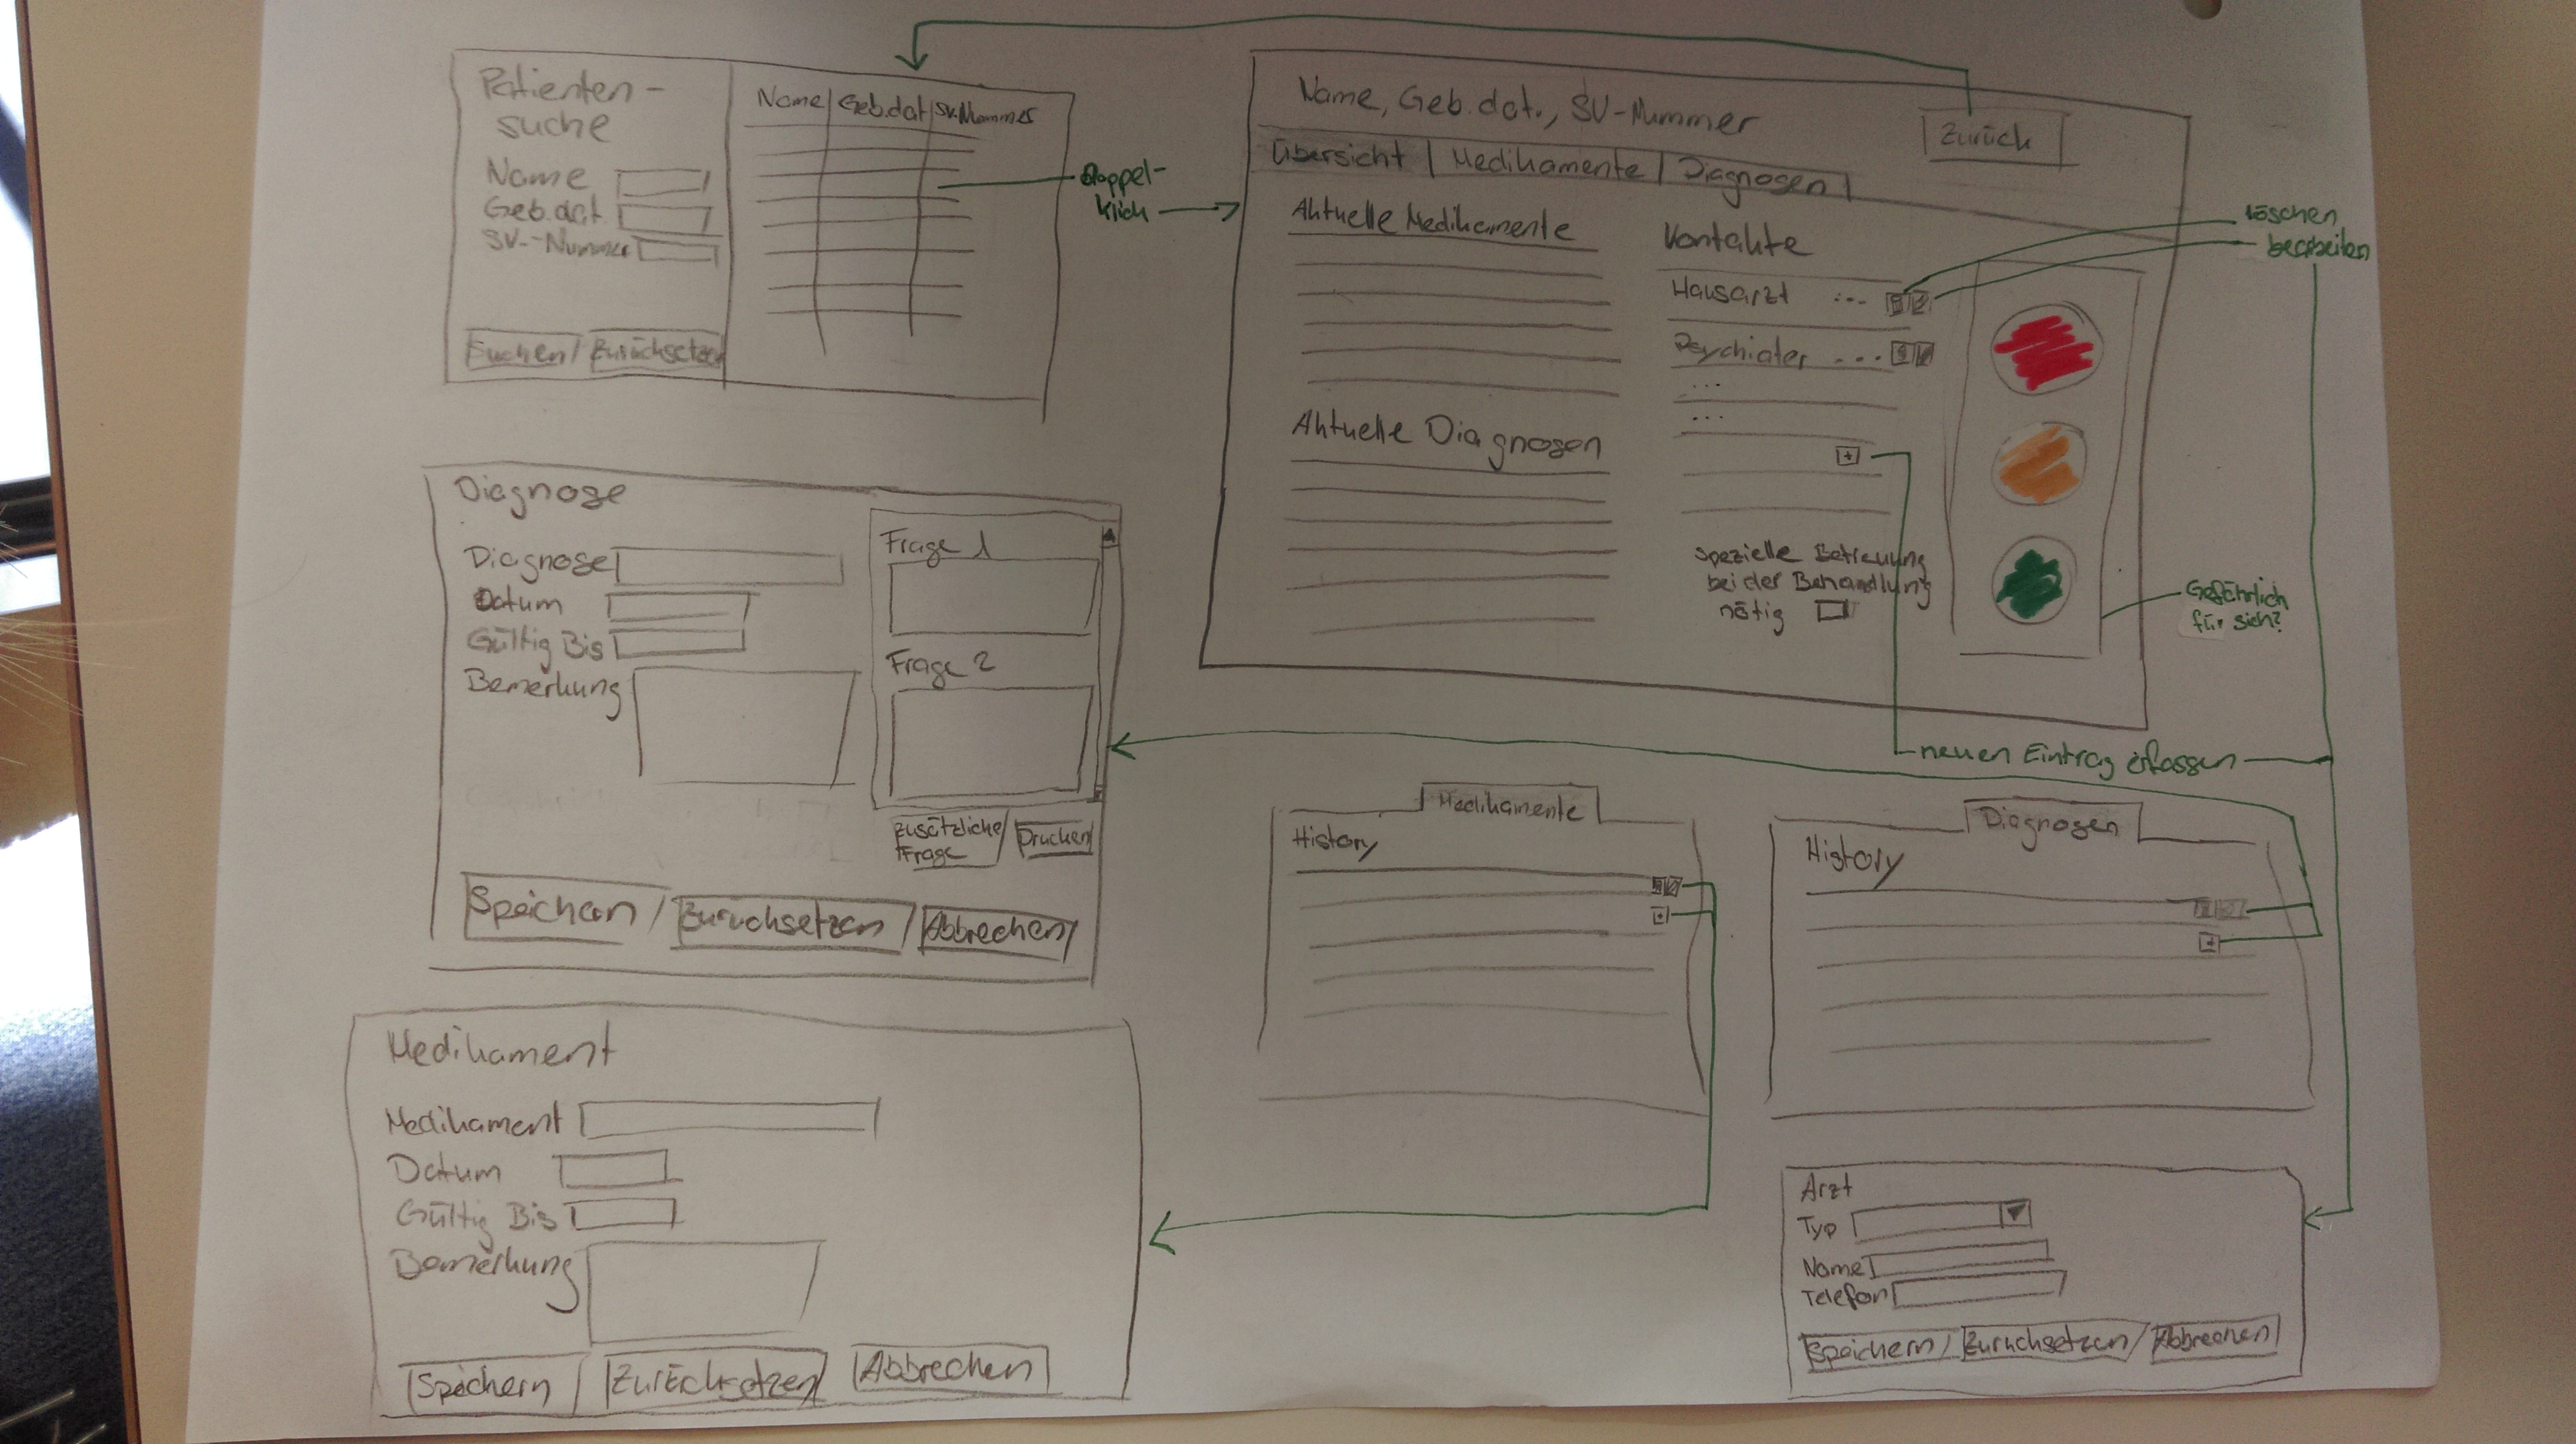 Patienten-
suche
Name
Geb.dat
SV.-Nummer
Suchen / Zurücksetzen
Name | Geb.dat | SV.Nummer
Doppel-
klick
Name, Geb.dat., SV-Nummer
Zurück
Übersicht | Medikamente | Diagnosen |
Aktuelle Medikamente
Aktuelle Diagnosen
Kontakte
Hausarzt ...
Psychiater ...
...
...
+
spezielle Betreuung
bei der Behandlung
nötig
löschen
bearbeiten
Gefährlich
für sich?
neuen Eintrag erfassen
Diagnose
Diagnose
Datum
Gültig Bis
Bemerkung
Frage 1
Frage 2
zusätzliche
Frage
Drucken
Speichern / Zurücksetzen / Abbrechen
Medikamente
History
+
Diagnosen
History
+
Medikament
Medikament
Datum
Gültig Bis
Bemerkung
Speichern / Zurücksetzen / Abbrechen
Arzt
Typ
Name
Telefon
Speichern / Zurücksetzen / Abbrechen